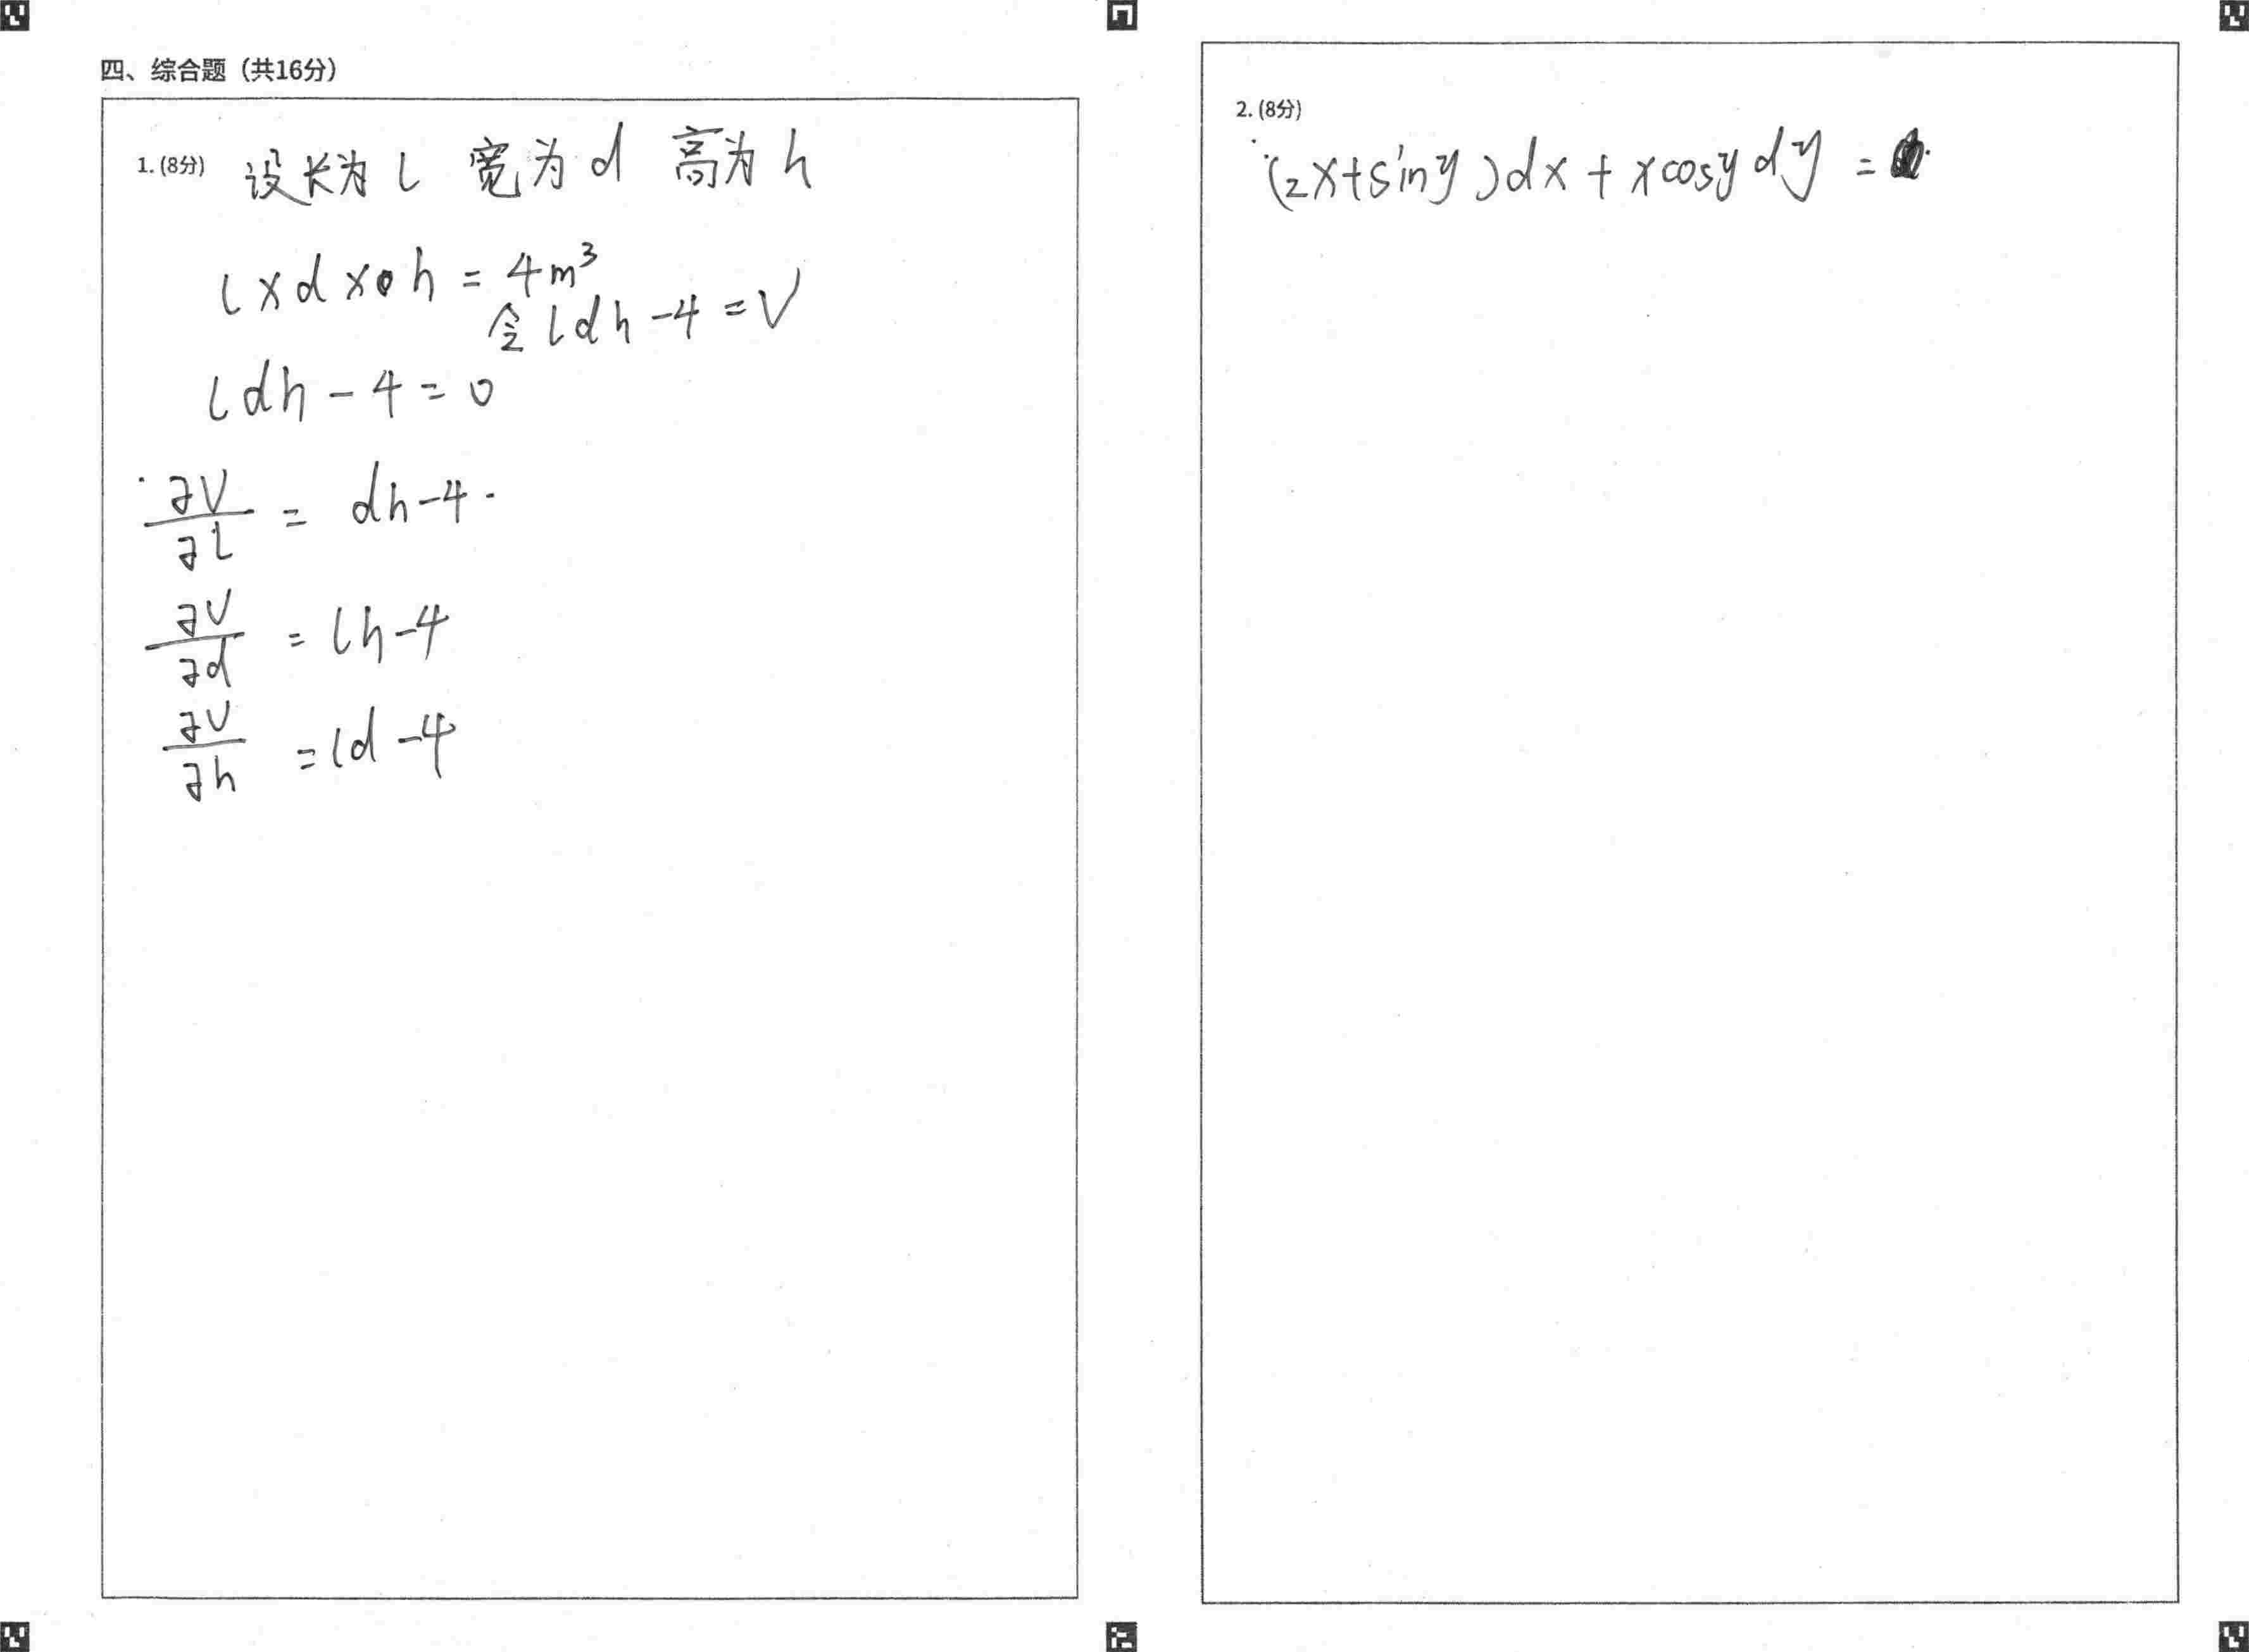 四、综合题（共16分）
1. (8分) 设长为 l 宽为 d 高为 h
l × d × h = 4m³
令 ldh - 4 = V
ldh - 4 = 0
∂V/∂l = dh - 4
∂V/∂d = lh - 4
∂V/∂h = ld - 4
2. (8分)
(2x+siny)dx + xcosy dy =